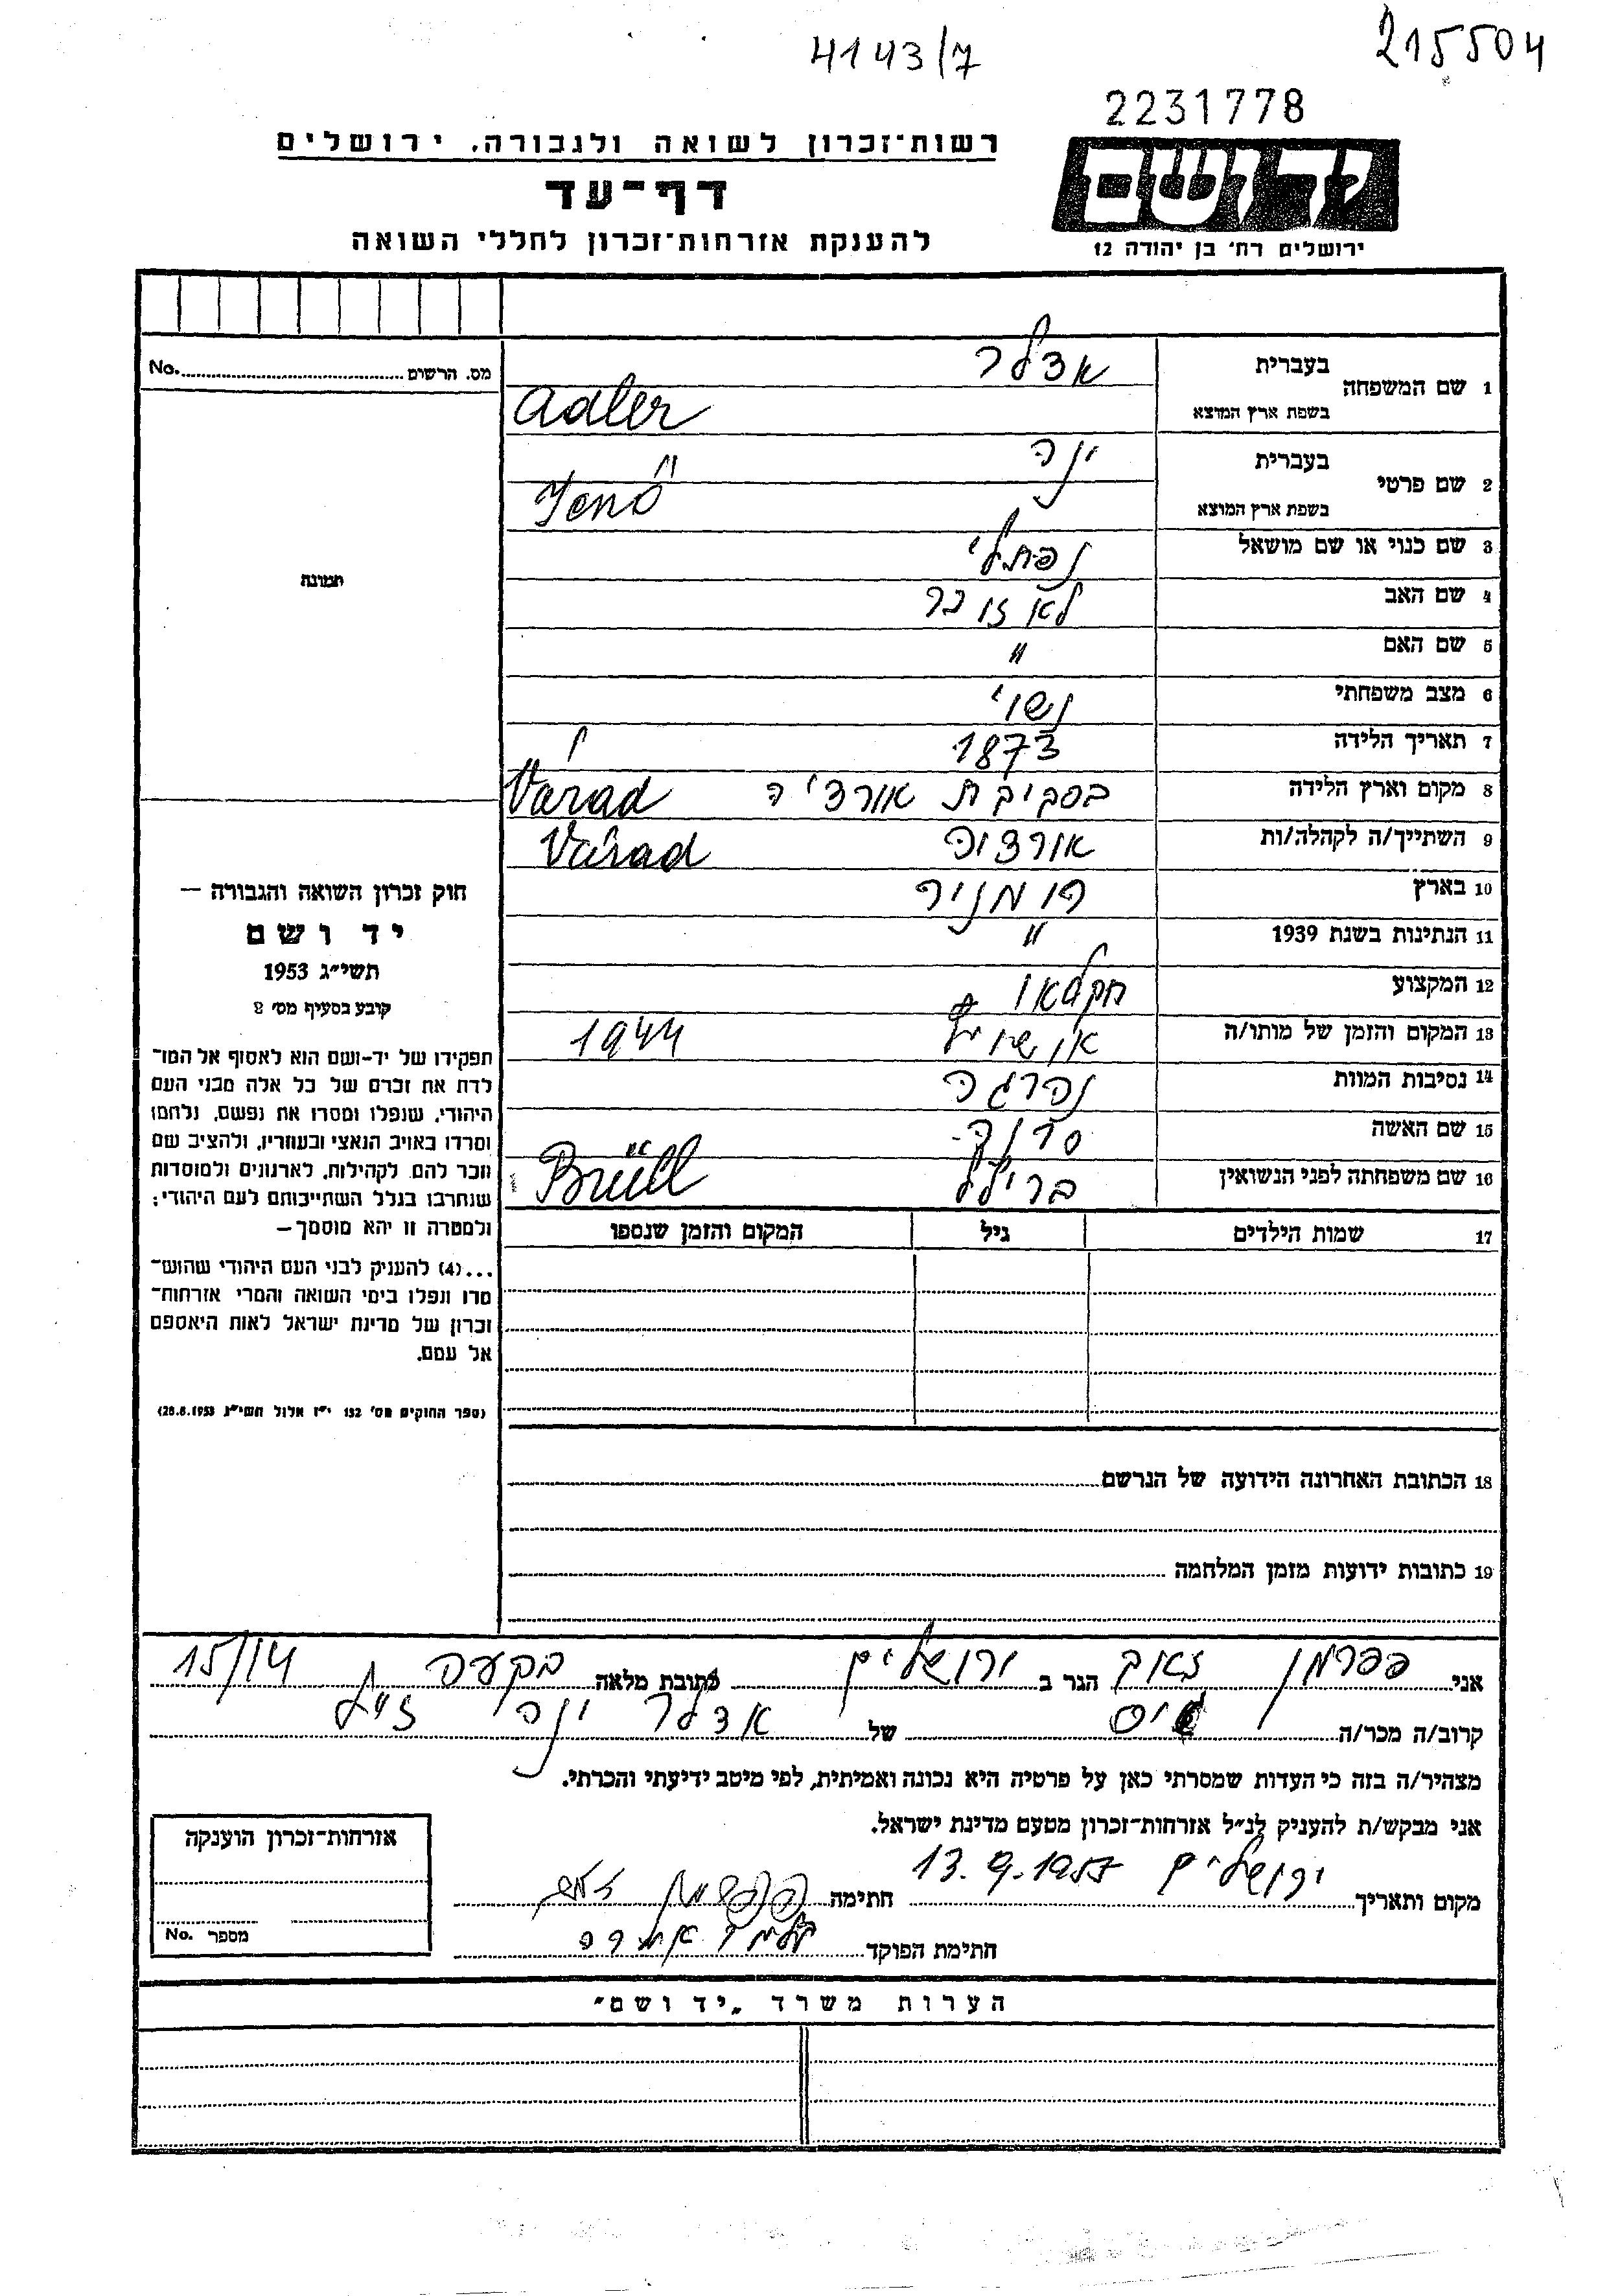 4143/7
215504
2231778
יד ושם
ירושלים רח' בן יהודה 12
רשות־זכרון לשואה ולגבורה. ירושלים
דף־עד
להענקת אזרחות־זכרון לחללי השואה
מס. הרשום No.
1 שם המשפחה בעברית אדלר
בשפת ארץ המוצא Adler
2 שם פרטי בעברית ינה
בשפת ארץ המוצא Jenő
3 שם כנוי או שם מושאל נפתלי
4 שם האב לא זוכר
5 שם האם "
6 מצב משפחתי נשוי
7 תאריך הלידה 1873
8 מקום וארץ הלידה בסביבת אורדיה Várad
9 השתייך/ה לקהלה/ות אורדיה Várad
10 בארץ רומניה
11 הנתינות בשנת 1939 "
12 המקצוע חקלאי
13 המקום והזמן של מותו/ה אושויץ 1944
14 נסיבות המוות נהרגה
15 שם האשה
16 שם משפחתה לפני הנשואין ברילל Brüll
17 שמות הילדים גיל המקום והזמן שנספו
18 הכתובת האחרונה הידועה של הנרשם
19 כתובות ידועות מזמן המלחמה
תמונה
חוק זכרון השואה והגבורה —
יד ושם
תשי״ג 1953
קובע בסעיף מס׳ 2
תפקידו של יד-ושם הוא לאסוף אל המו־
לדת את זכרם של כל אלה מבני העם
היהודי, שנפלו ומסרו את נפשם, נלחמו
ומרדו באויב הנאצי ובעוזריו, ולהציב שם
וזכר להם לקהילות, לארגונים ולמוסדות
שנחרבו בגלל השתייכותם לעם היהודי:
ולמטרה זו יהא מוסמך—
...(4) להעניק לבני העם היהודי שהוש־
מדו ונפלו בימי השואה והמרי אזרחות־
זכרון של מדינת ישראל לאות היאספם
אל עמם.
(ספר החוקים מס׳ 132 י״ז אלול תשי״ג 28.8.1953)
אני פפרמן זאב הגר ב ירושלים כתובת מלאה בקעה 15/14
קרוב/ה מכר/ה גיס של אדלר ינה ז״ל
מצהיר/ה בזה כי העדות שמסרתי כאן על פרטיה היא נכונה ואמיתית, לפי מיטב ידיעתי והכרתי.
אני מבקש/ת להעניק לנ״ל אזרחות־זכרון מטעם מדינת ישראל.
מקום ותאריך ירושלים 13.9.1957 חתימה פפרמן זאב
חתימת הפוקד
אזרחות־זכרון הוענקה
מספר No.
הערות משרד „יד ושם״